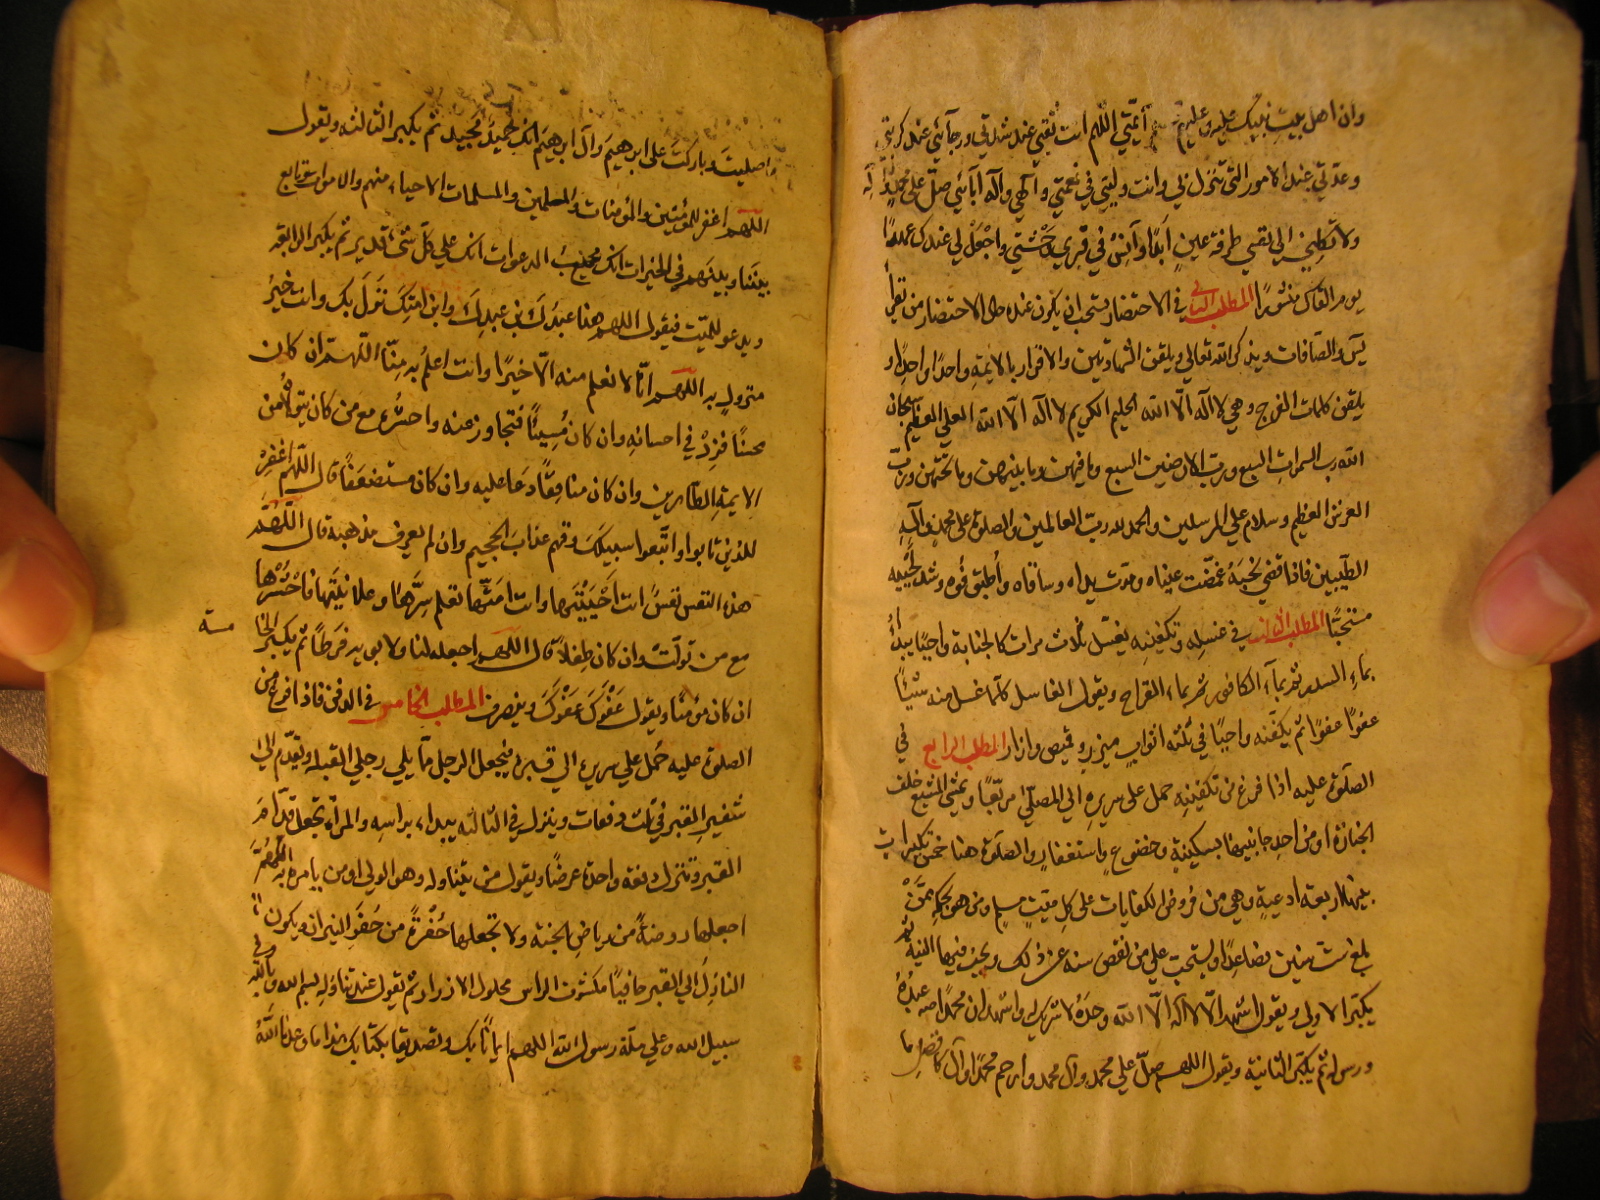 وان اهل بيت نبيك عليه وعليهم أئمتي اللهم انت ثقتي عند شدتي ورجآئي عند كربتي
وعدتي عند الامور التي تنزل بي وانت وليي في نعمتي والهي واله آبائي صل على محمد وآله
ولا تكلني الى نفسي طرفة عين أبدًا وآنس في قبري وحشتي واجعل لي عندك عهدًا
يوم القاك منشورًا المطلب الثاني في الاحتضار يستحب ان يكون عنده حال الاحتضار من يقرأ
يس والصافات ويذكر الله تعالى ويلقن الشهادتين والاقرار بالايمة واحدًا واحدًا و
يلقن كلمات الفرج وهي لا اله الّا الله الحليم الكريم لا اله الّا الله العلي العظيم سبحان
الله رب السموات السبع ورب الارضين السبع وما فيهن وما بينهن وما تحتهن ورب
العرش العظيم وسلام على المرسلين والحمد لله رب العالمين والصلوة على محمد وآله
الطيبين فاذا قضى نحبه غمضت عيناه ومدت يداه وساقاه وأطبق فوه وشد لحييه
مستحبًا المطلب الثالث في غسله وتكفينه يغسل ثلاث مرات كالجنابة واجبًا يبدأ
بماء السدر ثم بماء الكافور ثم بماء القراح ويقول الغاسل كلما غسل منه شيئًا
عفوًا عفوًا ثم يكفنه واجبًا في ثلثة اثواب ميزر وقميص وازار المطلب الرابع في
الصلوة عليه اذا فرغ من تكفينه حمل على سريره الى المصلى مربعًا ويمشي المشيع خلف
الجنازة او من احد جانبيها بسكينة وخضوع واستغفار والصلوة هنا خمس تكبيرات
بينها اربعة ادعية وهي من فروض الكفايات على كل ميت مسلم ومن هو بحكمه ممن
بلغ ست سنين فصاعدًا ويستحب على من نقص سنه عن ذلك ويجب فيها النية ثم
يكبر الاولى ويقول اشهد ان لا اله الّا الله وحده لا شريك له واشهد ان محمدًا عبده
ورسوله ثم يكبر الثانية ويقول اللهم صل على محمد وآل محمد وارحم محمدًا وآل كافضل ما
صليت وباركت على ابرهيم وآل ابرهيم انك حميد مجيد ثم يكبر الثالثة ويقول
اللهم اغفر للمؤمنين والمؤمنات والمسلمين والمسلمات الاحياء منهم والاموات وتابع
بيننا وبينهم في الخيرات انك مجيب الدعوات انك على كل شيء قدير ثم يكبر الرابعة
ويدعو للميت فيقول اللهم هذا عبدك بن عبدك وابن امتك نزل بك وانت خير
منزول به اللهم انا لا نعلم منه الّا خيرًا وانت اعلم به منّا اللهم ان كان
محسنًا فزد في احسانه وان كان مسيئًا فتجاوز عنه واحشره مع من كان يتولاه من
الايمة الطاهرين وان كان منافقًا دعا عليه وان كان مستضعفًا قال اللهم اغفر
للذين تابوا واتبعوا سبيلك وقهم عذاب الجحيم وان لم يعرف مذهبه قال اللهم
هذه النفس نفس انت احييتها وانت امتها تعلم سرها وعلانيتها فاحشرها
مع من تولت وان كان طفلًا قال اللهم اجعله لنا ولابويه فرطًا ثم يكبر الخا
مسة
ان كان مؤمنًا ويقول عفوك عفوك وينصرف المطلب الخامس في الدفن فاذا فرغ من
الصلوة عليه حمل على سريره الى قبره فيجعل الرجل مما يلي رجلي القبله ويقدم الى
شفير القبر في ثلث دفعات وينزل في الثالثه يبداء براسه والمرأة تجعل قدام
القبر وتنزل دفعة واحدة عرضًا ويقول من يتناوله وهو الولي او من يأمره به اللهم
اجعلها روضة من رياض الجنة ولا تجعلها حفرة من حفر النيران ويكون
النازل الى القبر حافيًا مكشوف الراس محلول الازرار ثم تقول عند تناوله بسم الله وبالله وفي
سبيل الله وعلى ملة رسول الله اللهم ايمانًا بك وتصديقًا بكتابك هذا ما وعدنا الله